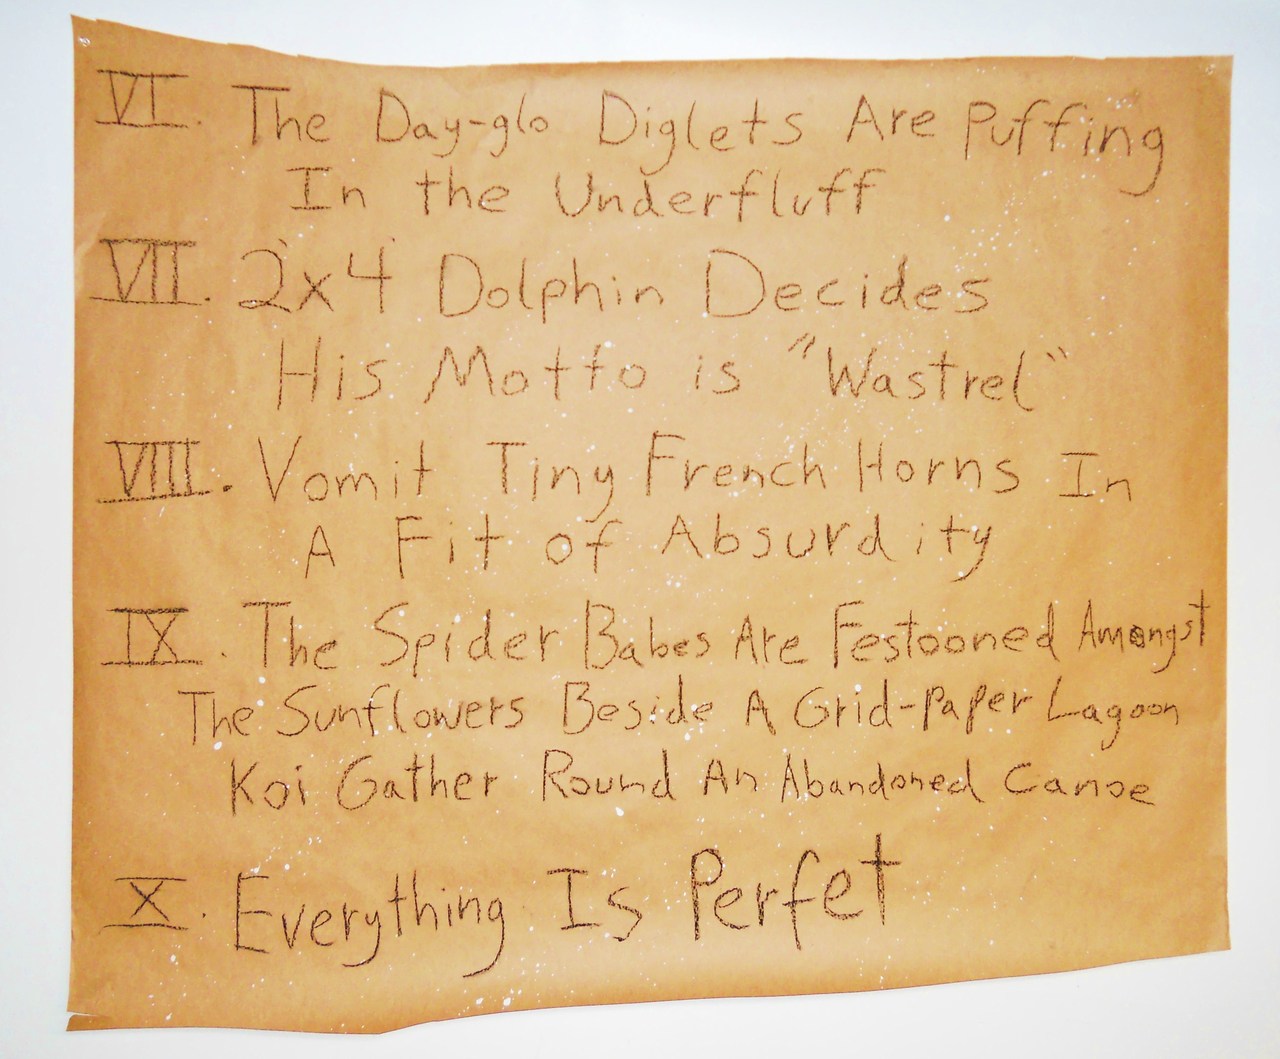 VI. The Day-glo Diglets Are Puffing
In the Underfluff
VII. 2'x4' Dolphin Decides
His Motto is "Wastrel"
VIII. Vomit Tiny French Horns In
A Fit of Absurdity
IX. The Spider Babes Are Festooned Amongst
The Sunflowers Beside A Grid-Paper Lagoon
Koi Gather Round An Abandoned Canoe
X. Everything Is Perfet